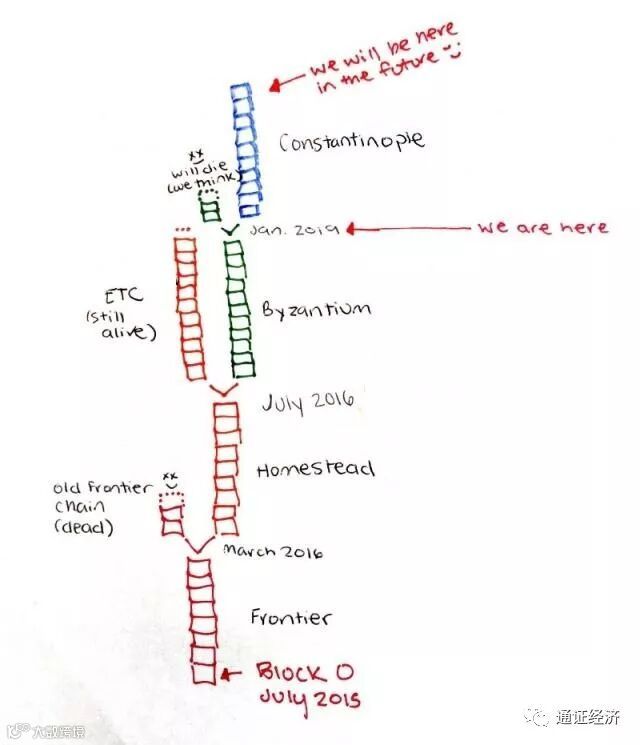 we will be here
in the future
Constantinople
xx
will die
(we think)
Jan. 2019
we are here
ETC
(still
alive)
Byzantium
July 2016
Homestead
xx
old frontier
chain
(dead)
March 2016
Frontier
BLOCK 0
JULY 2015
通证经济
大数跨境